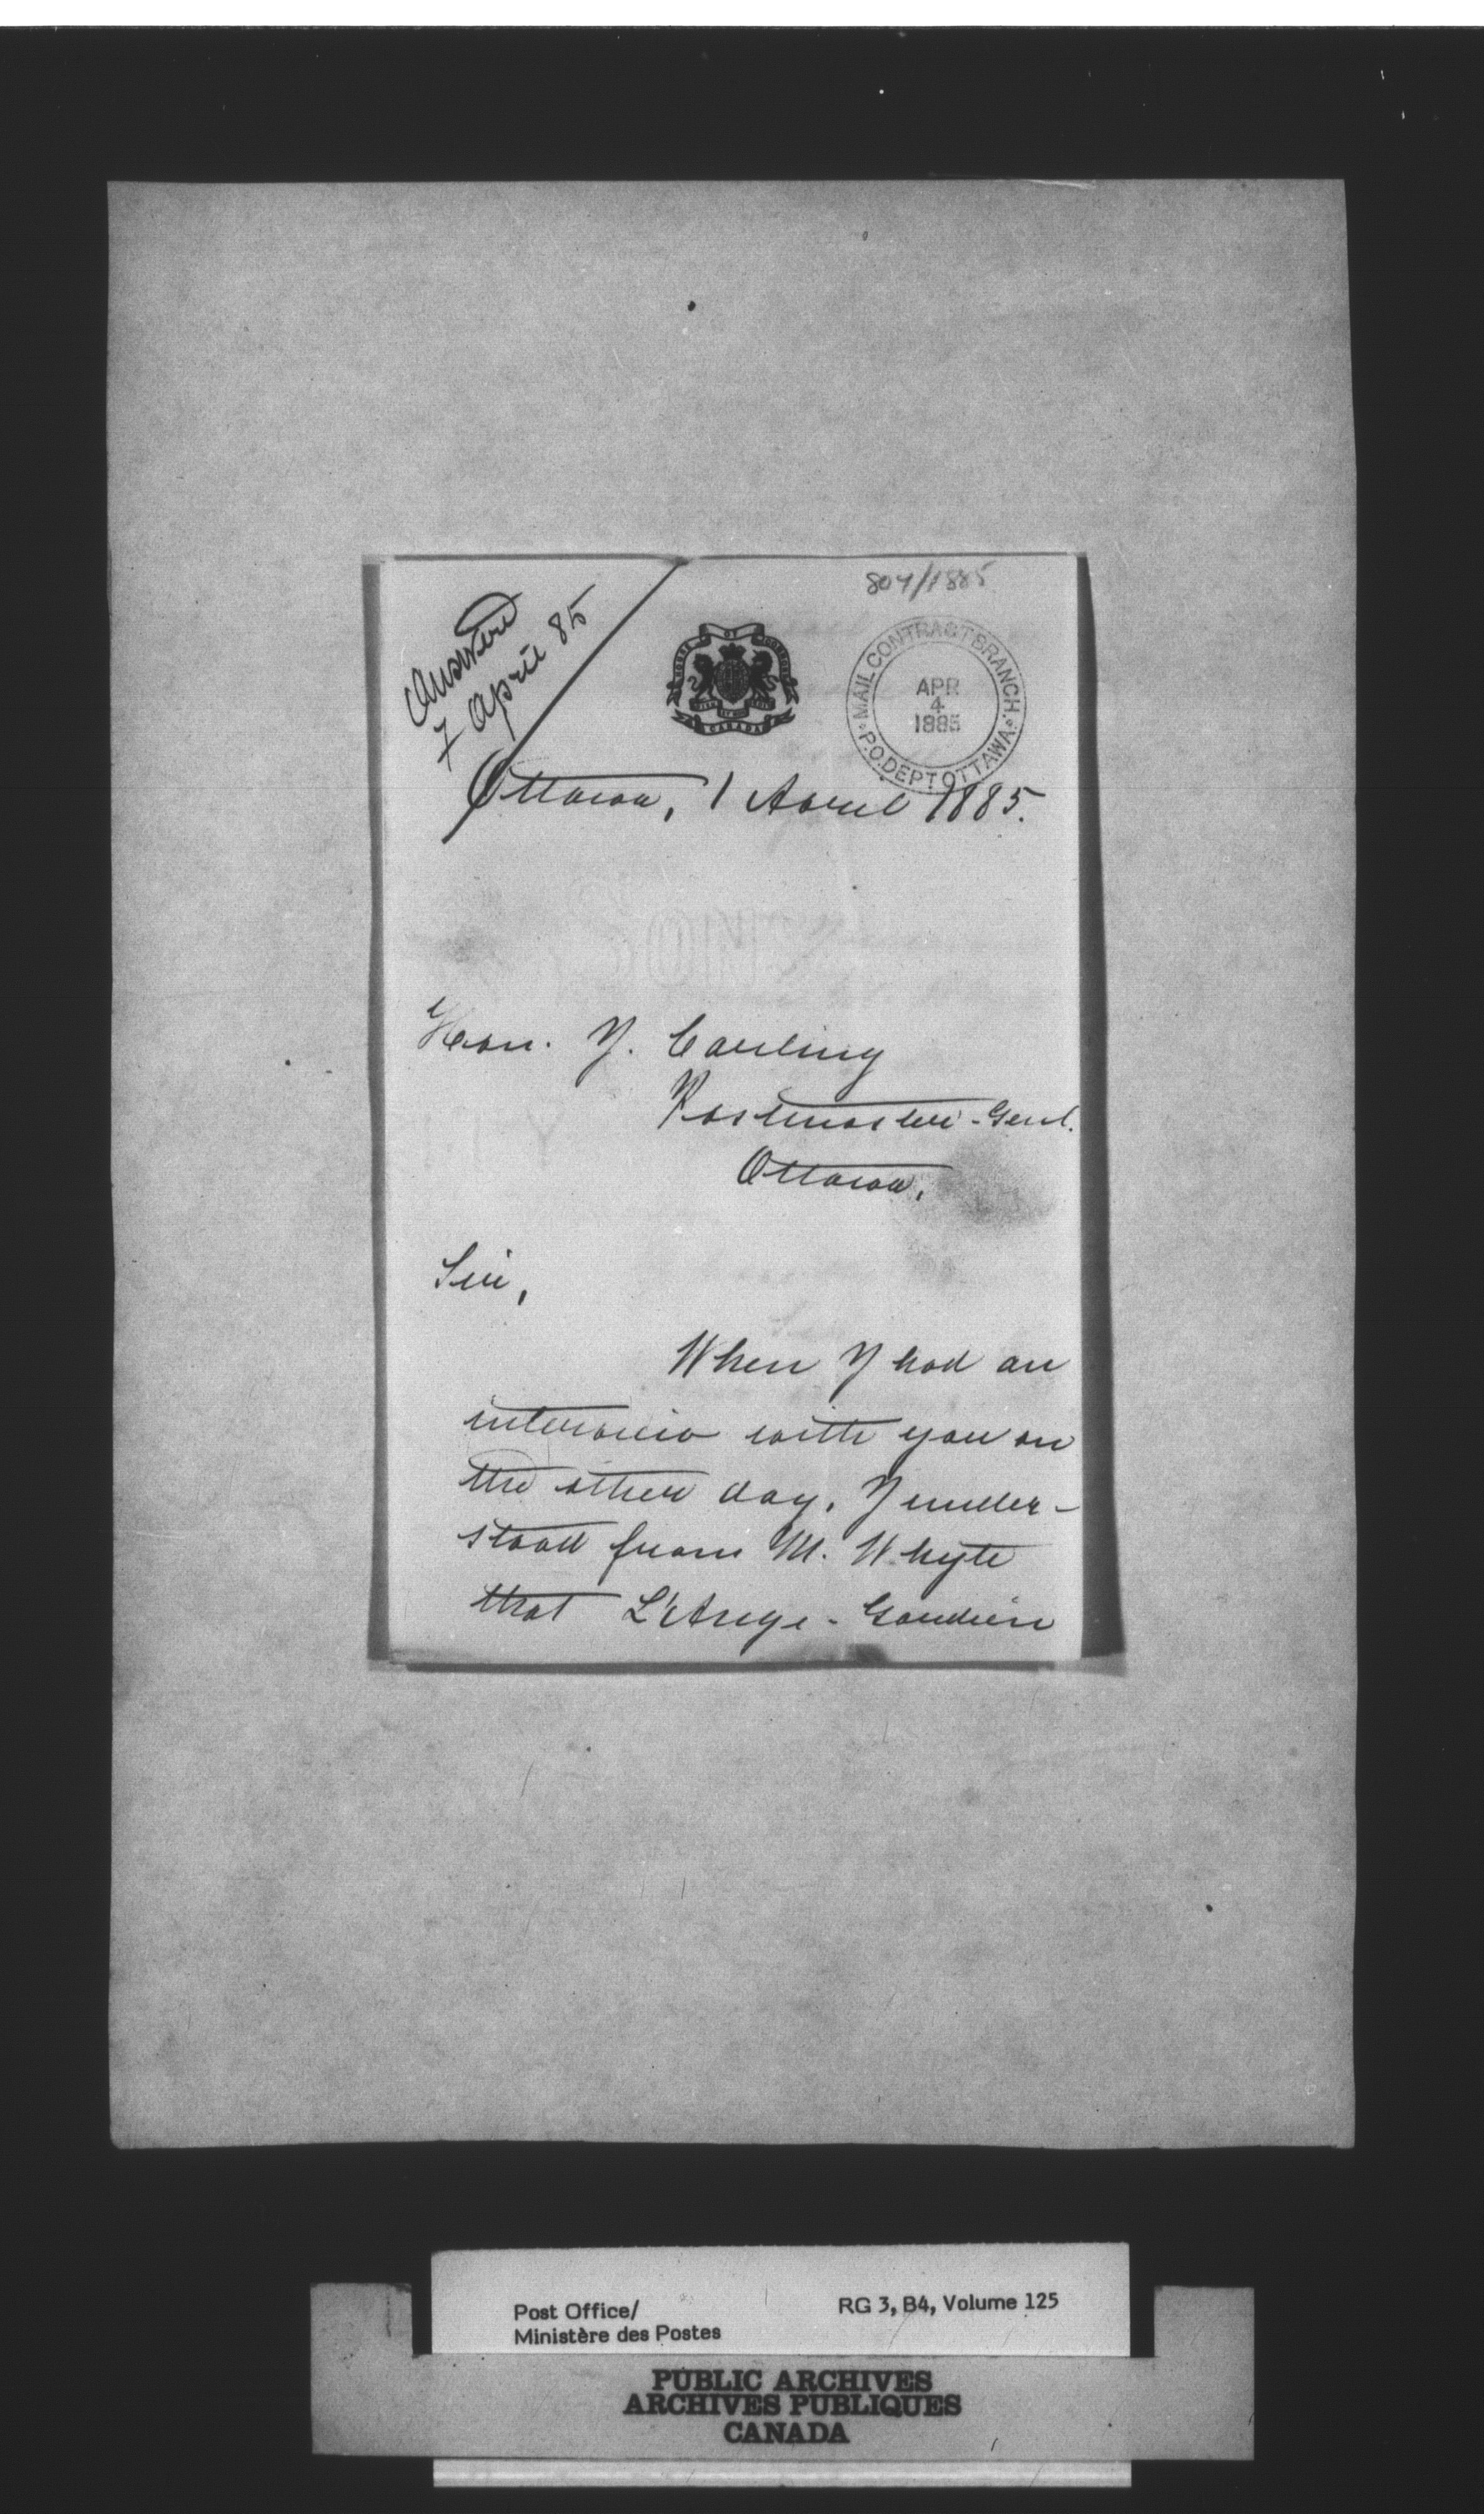 804/1885
Answered
7 April 85
HOUSE OF COMMONS
CANADA
MAIL CONTRACT BRANCH.
APR
4
1885
P.O. DEPT OTTAWA.
Ottawa, 1 Avril 1885.
Hon. J. Carling
Postmaster-Genl.
Ottawa,
Sir,
When I had an
interview with you on
the other day, I under-
stood from M. Whyte
that L'Ange-Gardien
Post Office/
Ministère des Postes
RG 3, B4, Volume 125
PUBLIC ARCHIVES
ARCHIVES PUBLIQUES
CANADA